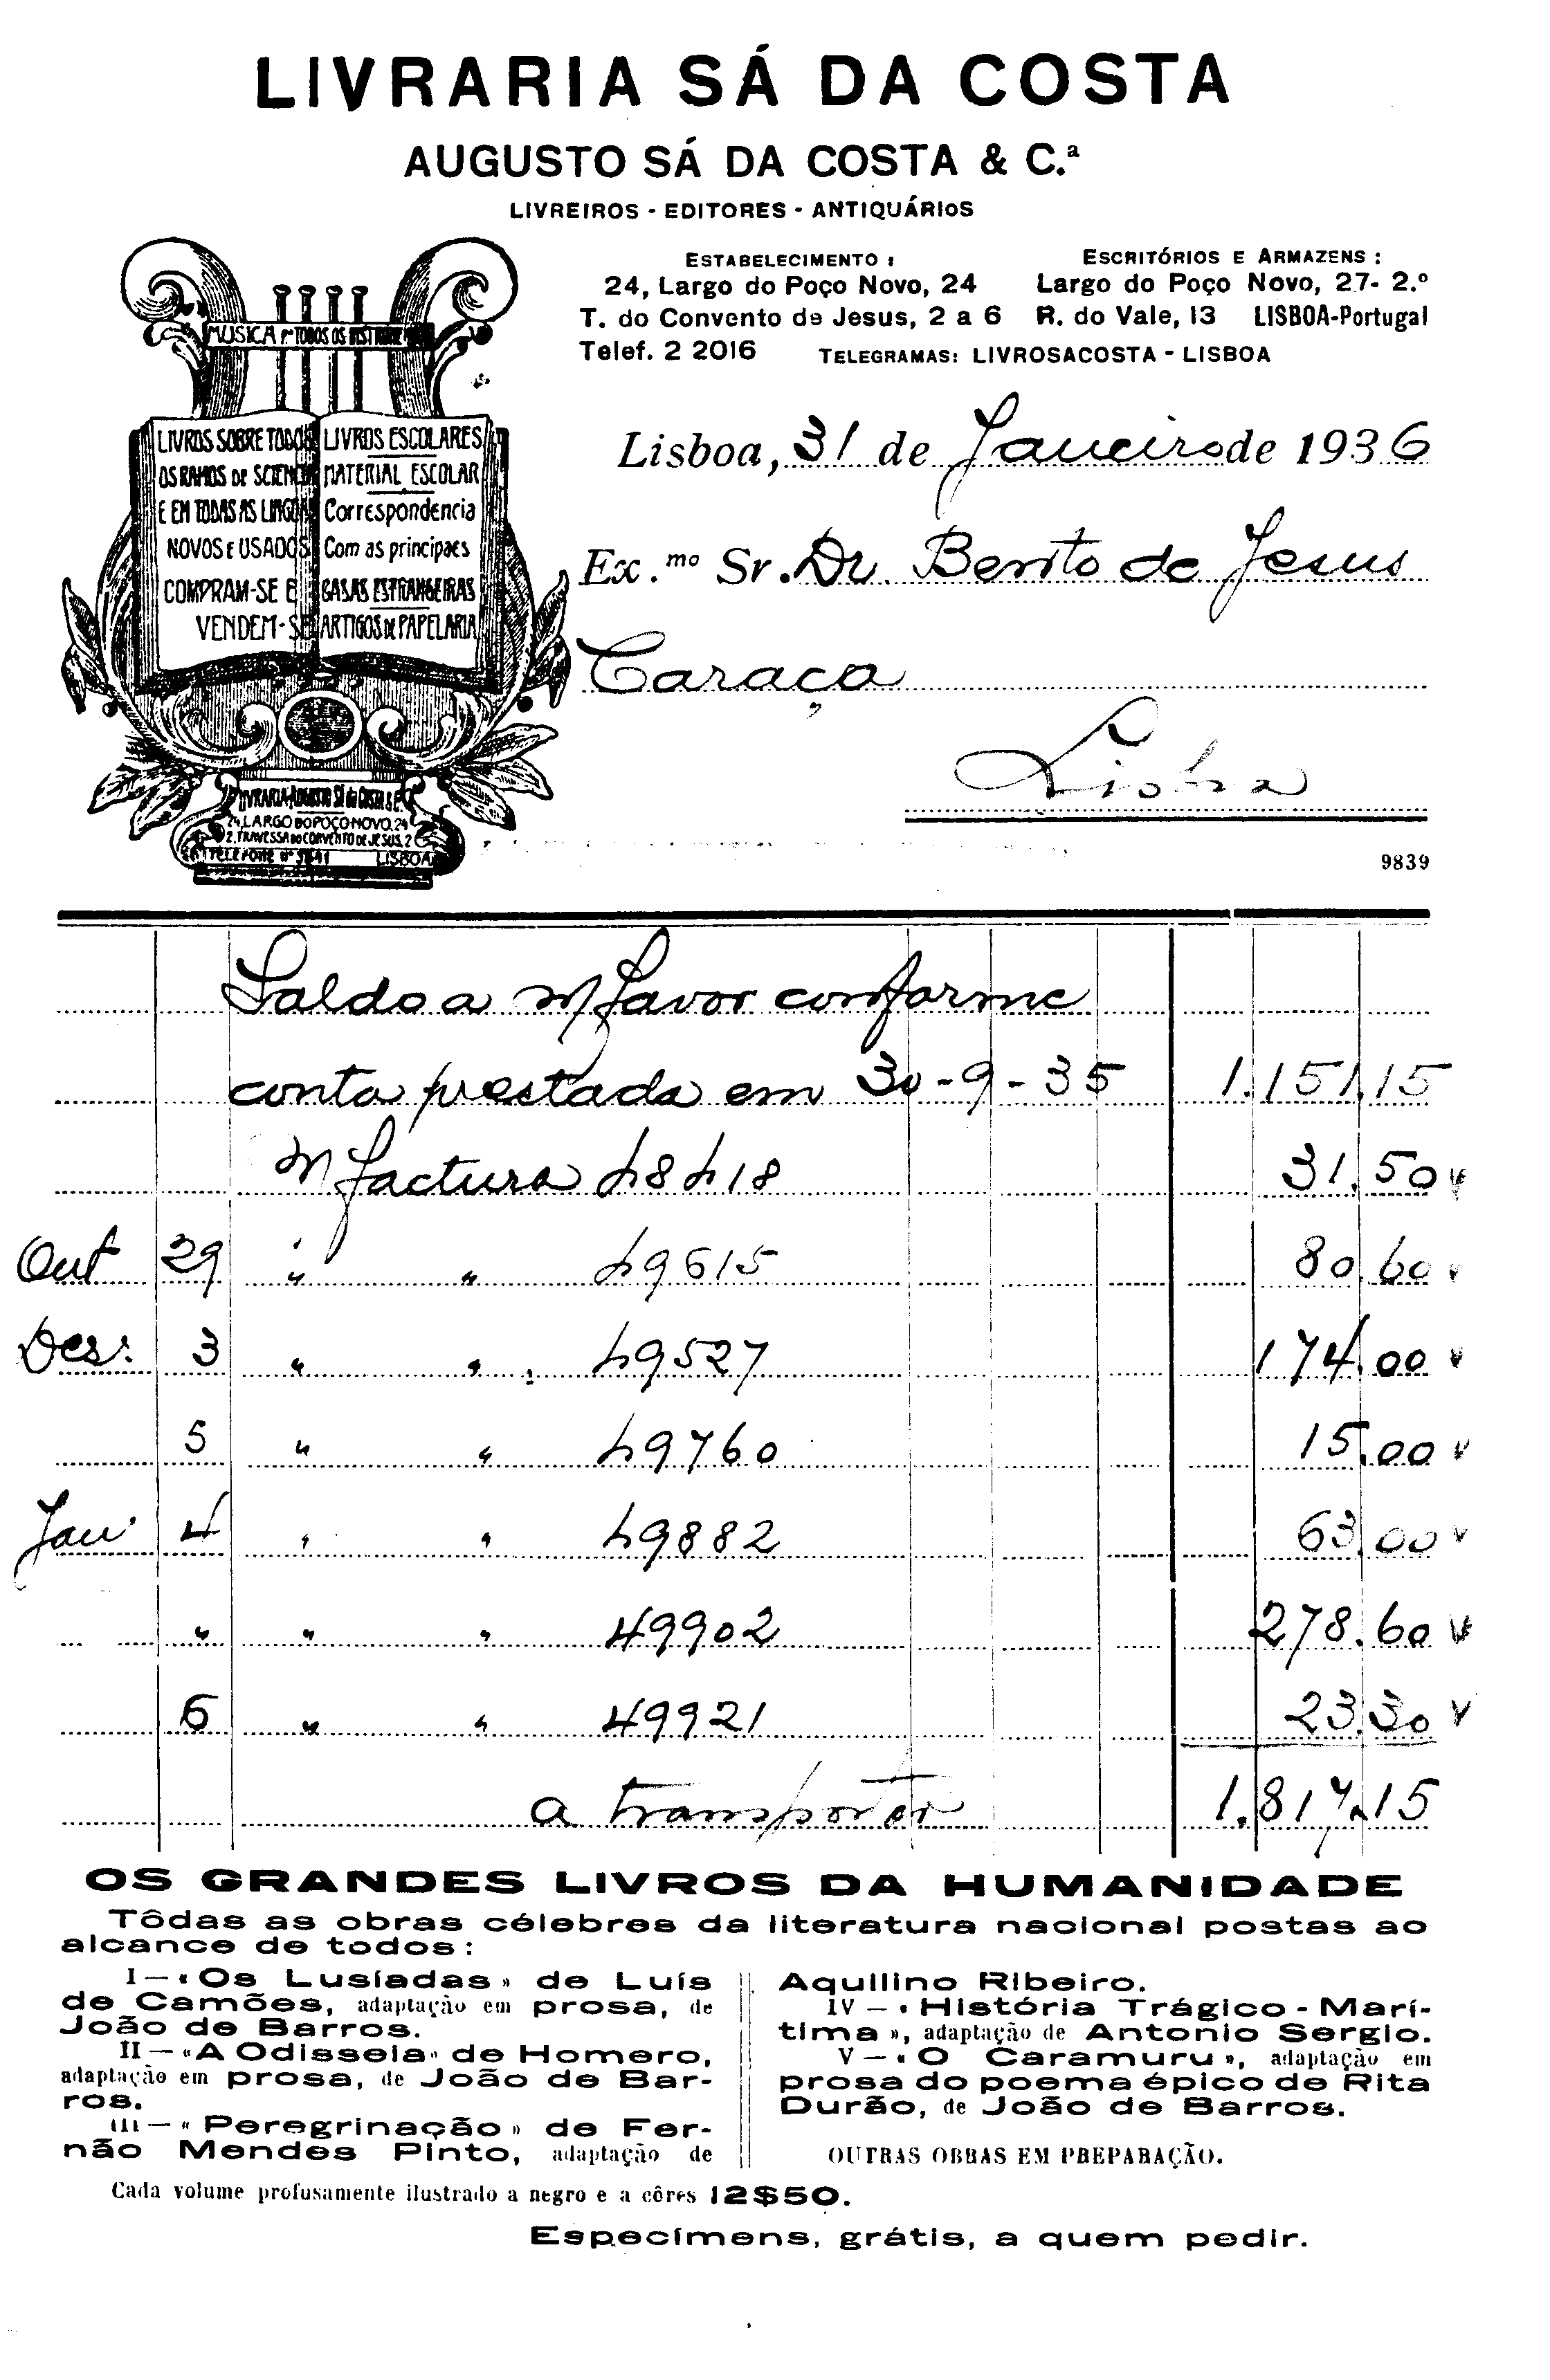 LIVRARIA SÁ DA COSTA
AUGUSTO SÁ DA COSTA & C.ª
LIVREIROS - EDITORES - ANTIQUÁRIOS
ESTABELECIMENTO :
24, Largo do Poço Novo, 24
T. do Convento de Jesus, 2 a 6
Telef. 2 2016
ESCRITÓRIOS E ARMAZENS :
Largo do Poço Novo, 27- 2.º
R. do Vale, 13 LISBOA-Portugal
TELEGRAMAS: LIVROSACOSTA - LISBOA
MUSICA TODOS OS
LIVROS SOBRE TODOS
OS RAMOS DE SCIENCIA
E EM TODAS AS LINGUAS
NOVOS E USADOS
COMPRAM-SE E
VENDEM-SE
LIVROS ESCOLARES
MATERIAL ESCOLAR
Correspondencia
Com as principaes
CASAS ESTRANGEIRAS
ARTIGOS DE PAPELARIA
LIVRARIA AUGUSTO SÁ da COSTA & Cª
24, LARGO DO POÇO NOVO, 24
2, TRAVESSA DO CONVENTO DE JESUS, 2
TELEFONE nº LISBOA
Lisboa, 31 de Janeiro de 1936
Ex.mo Sr. Dr. Bento de Jesus
Caraça
Lisboa
9839
Saldo a m/ favor conforme
conta prestada em 30-9-35 1.151.15
m/ factura 48418 31.50 v
Out 29 " " 49615 80.60 v
Des: 3 " " 49527 174.00 v
5 " " 49760 15.00 v
Jan 4 " " 49882 63.00 v
" " " 49902 278.60 v
6 " " 49921 23.30 v
a transportar 1.817.15
OS GRANDES LIVROS DA HUMANIDADE
Tôdas as obras célebres da literatura nacional postas ao
alcance de todos:
I — «Os Lusíadas» de Luís
de Camões, adaptação em prosa, de
João de Barros.
II — «A Odisseia» de Homero,
adaptação em prosa, de João de Bar-
ros.
III — «Peregrinação» de Fer-
não Mendes Pinto, adaptação de
Aquilino Ribeiro.
IV — «História Trágico-Marí-
tima», adaptação de Antonio Sergio.
V — «O Caramuru», adaptação em
prosa do poema épico de Rita
Durão, de João de Barros.
OUTRAS OBRAS EM PREPARAÇÃO.
Cada volume profusamente ilustrado a negro e a côres 12$50.
Especímens, grátis, a quem pedir.